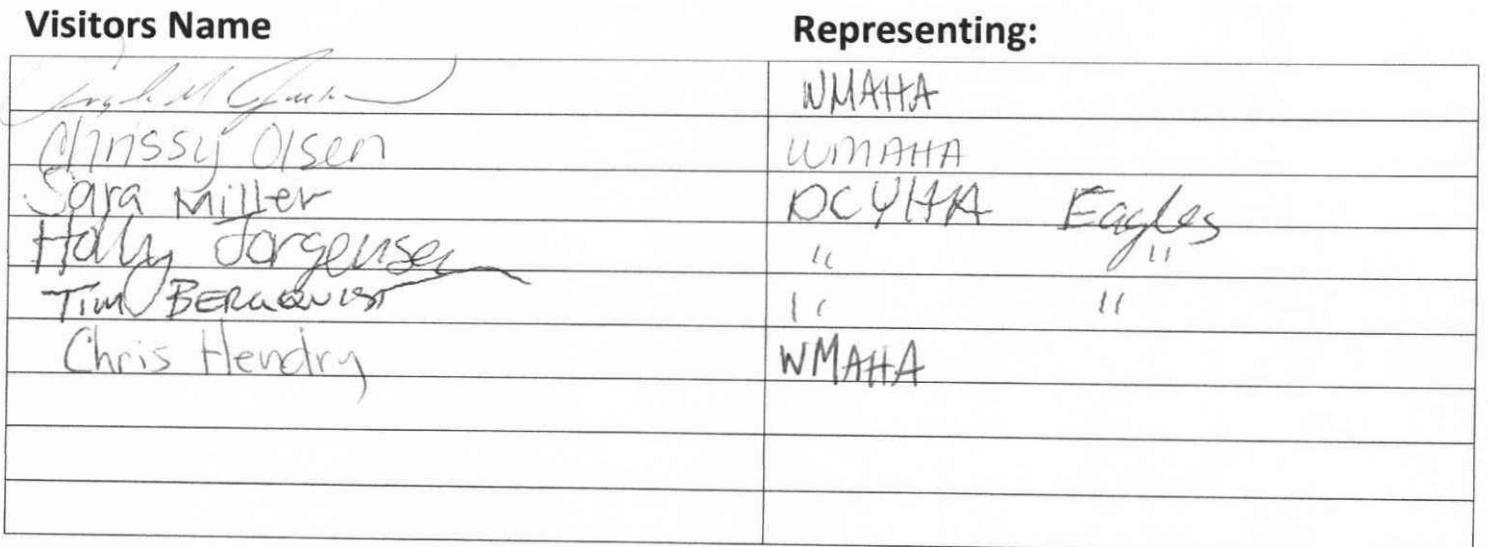 Visitors Name Representing:
WMAHA
Chrissy Olsen WMAHA
Sara Miller DCYHA Eagles
Holly Jorgensen " "
Tim BERGQUIST " "
Chris Hendry WMAHA